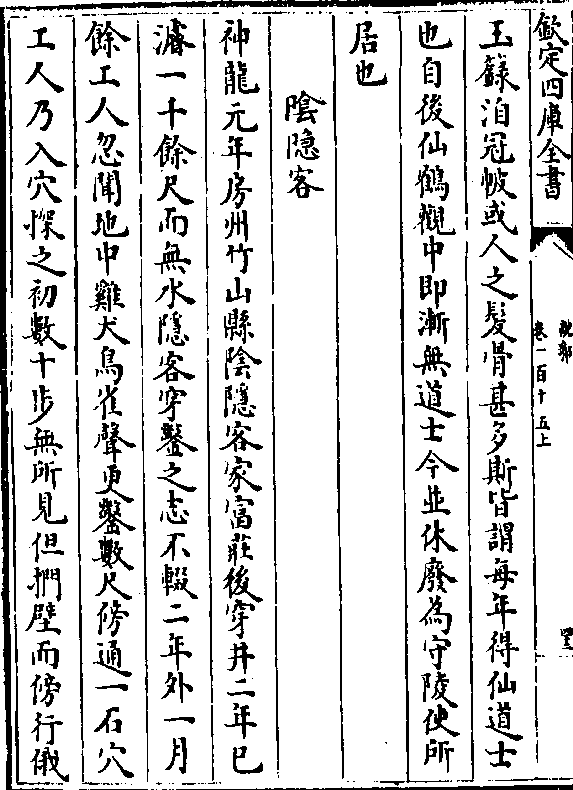 欽定四庫全書
說郛
卷一百十五上
玉籙洎冠帔或人之髮骨甚多斯皆謂每年得仙道士
也自後仙鶴觀中即漸無道士今並休廢為守陵使所
居也
陰隱客
神龍元年房州竹山縣陰隱客家富莊後穿井二年已
濬一千餘尺而無水隱客穿鑿之志不輟二年外一月
餘工人忽聞地中雞犬鳥雀聲更鑿數尺傍通一石穴
工人乃入穴探之初數十步無所見但捫壁而傍行俄